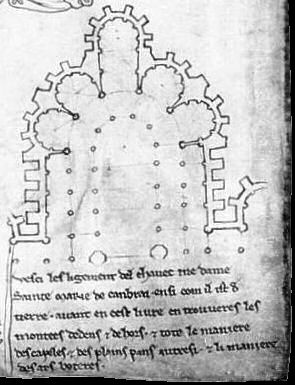 Vesci les ligement del chavec me dame
Sainte marie de canbrai ensi com il ist de
tierre · avant en cest livre en trouveres les
montees dedens ⁊ dehors · ⁊ tote le maniere
des capeles ⁊ des plains pans autresi · ⁊ li maniere
des ars boteres ·